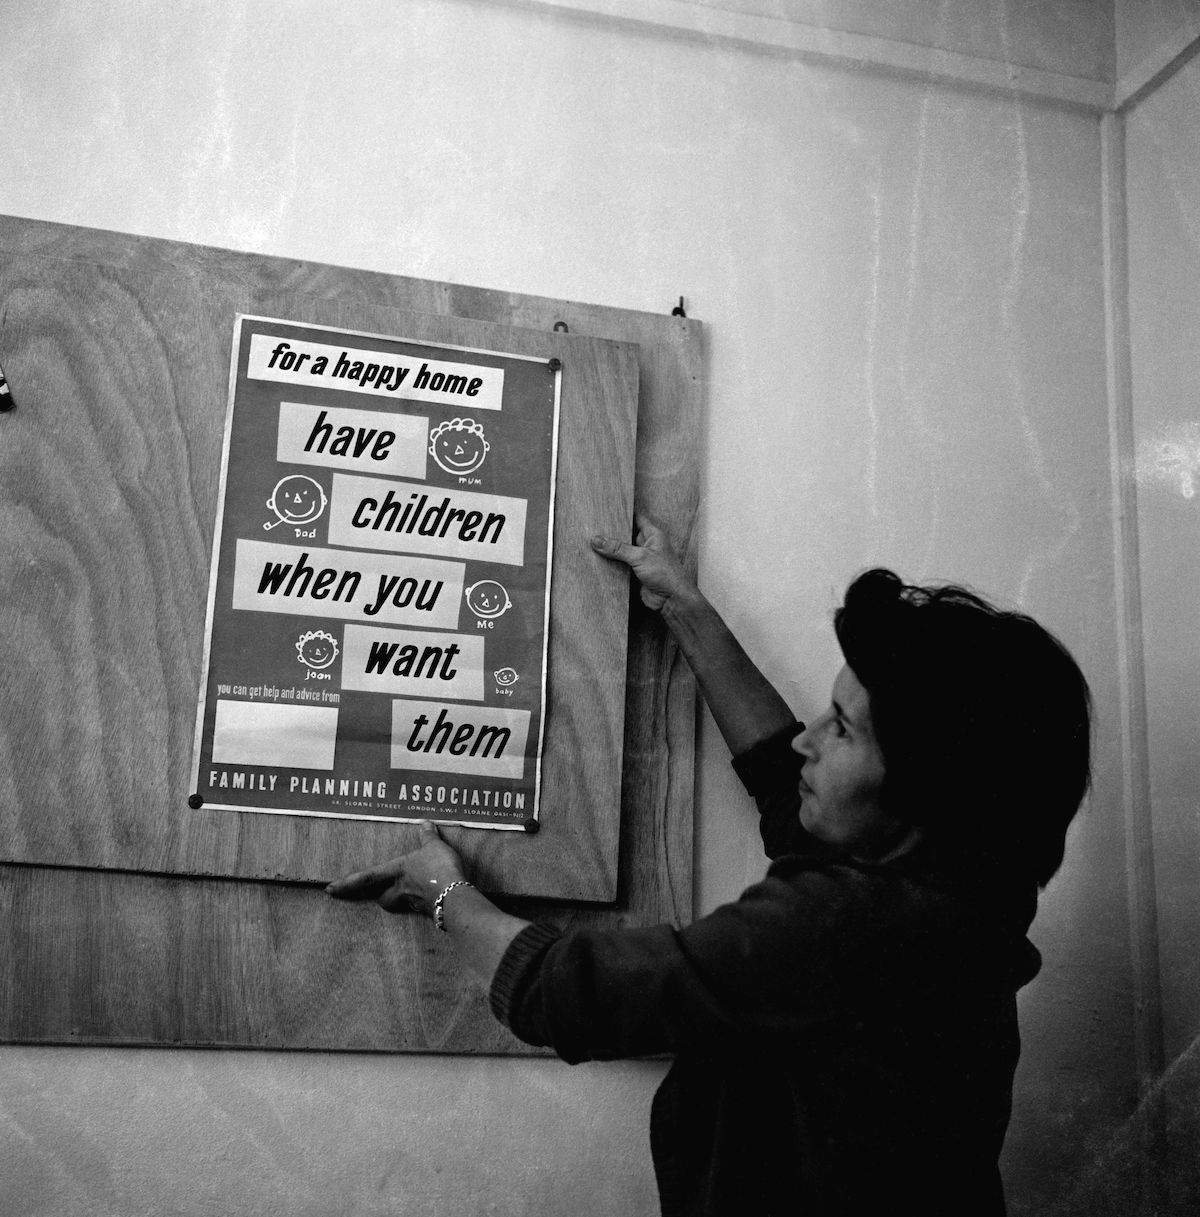 for a happy home
have
mum
children
Dad
when you
Me
want
joan
baby
you can get help and advice from
them
FAMILY PLANNING ASSOCIATION
64, SLOANE STREET, LONDON S.W.1 SLOANE 0451-9112